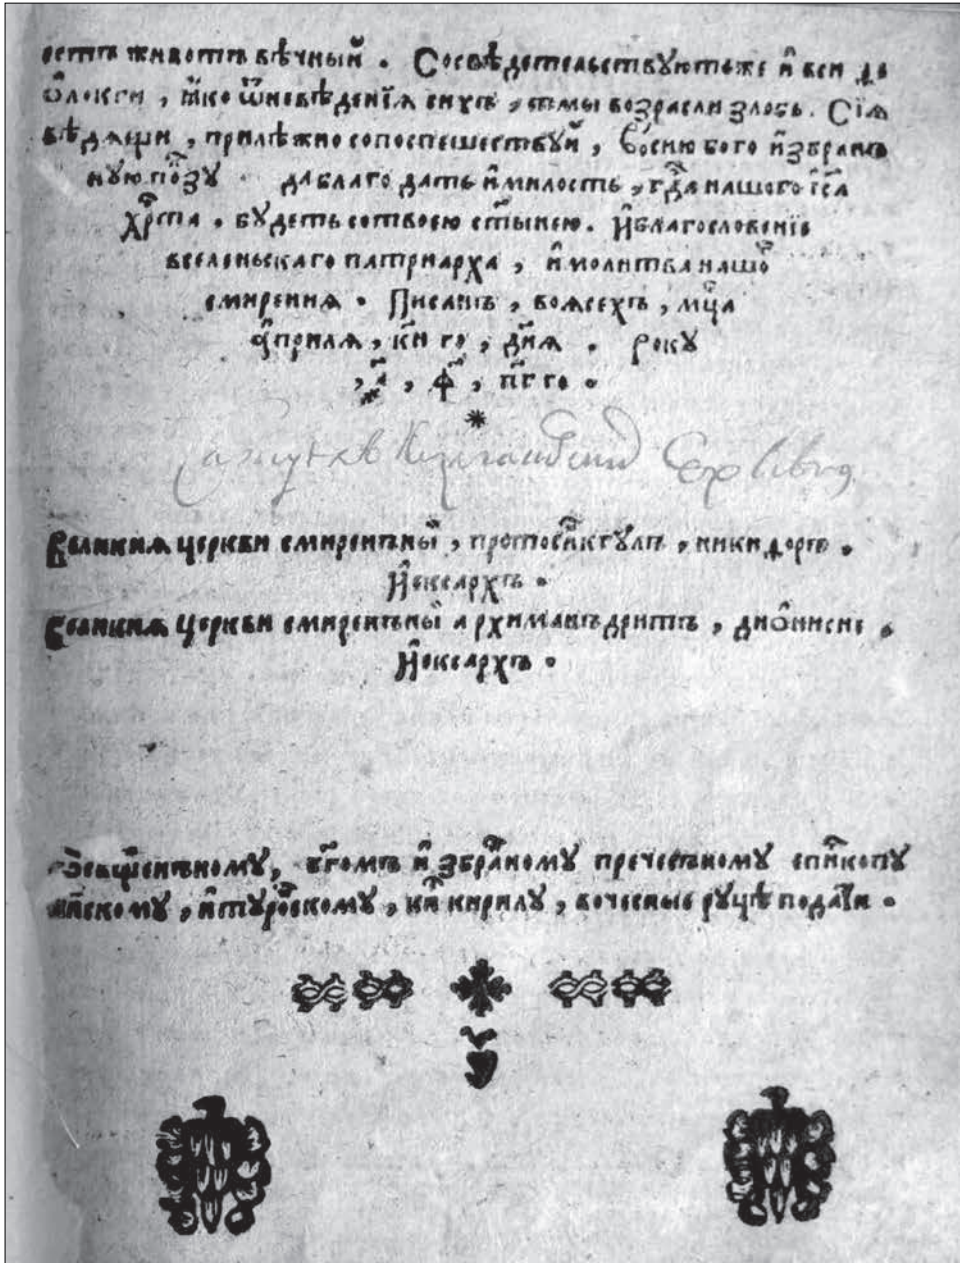 естъ животъ вѣчный . Сосвѣдетельствуютьже и҆ вси де
ѡ҆локги , ꙗ҆ко ѿневѣденїѧ внухъ , етмы возрасли злобь . Сїѧ
вѣдѧщи , прилѣжно сопоспешествуй , Босию бого и҆збранъ
ную по҆зу    даблаго дать и҆милость , гд҃а нашого іс҃а
хрⷭ҇та , будеть сотвоею ст҃ынею . И҆благословение
вселеньскаго патриарха , и҆ молитва нашо҆
смирениѧ . Писанъ , воꙗсехъ , мц҃а
а҆прилѧ , ки҃ го , дн҃ѧ . року
҂а҃ , ф҃ , пг҃ го .
*
Великиѧ церкви смиренъны҆й , протосинкгулъ , никифоръ .
И҆ексархъ .
Великиѧ церкви смиренъны҆й архиманъдритъ , дио҆нисие .
И҆ексархъ .
Ѡсвщ҃енъному, бг҃омъ и҆ збра҆ному пречестъному еп҃икопу
пи҆нскому , и҆туро҆вскому , ки҆ кирилу , вочесные руцѣ подати .